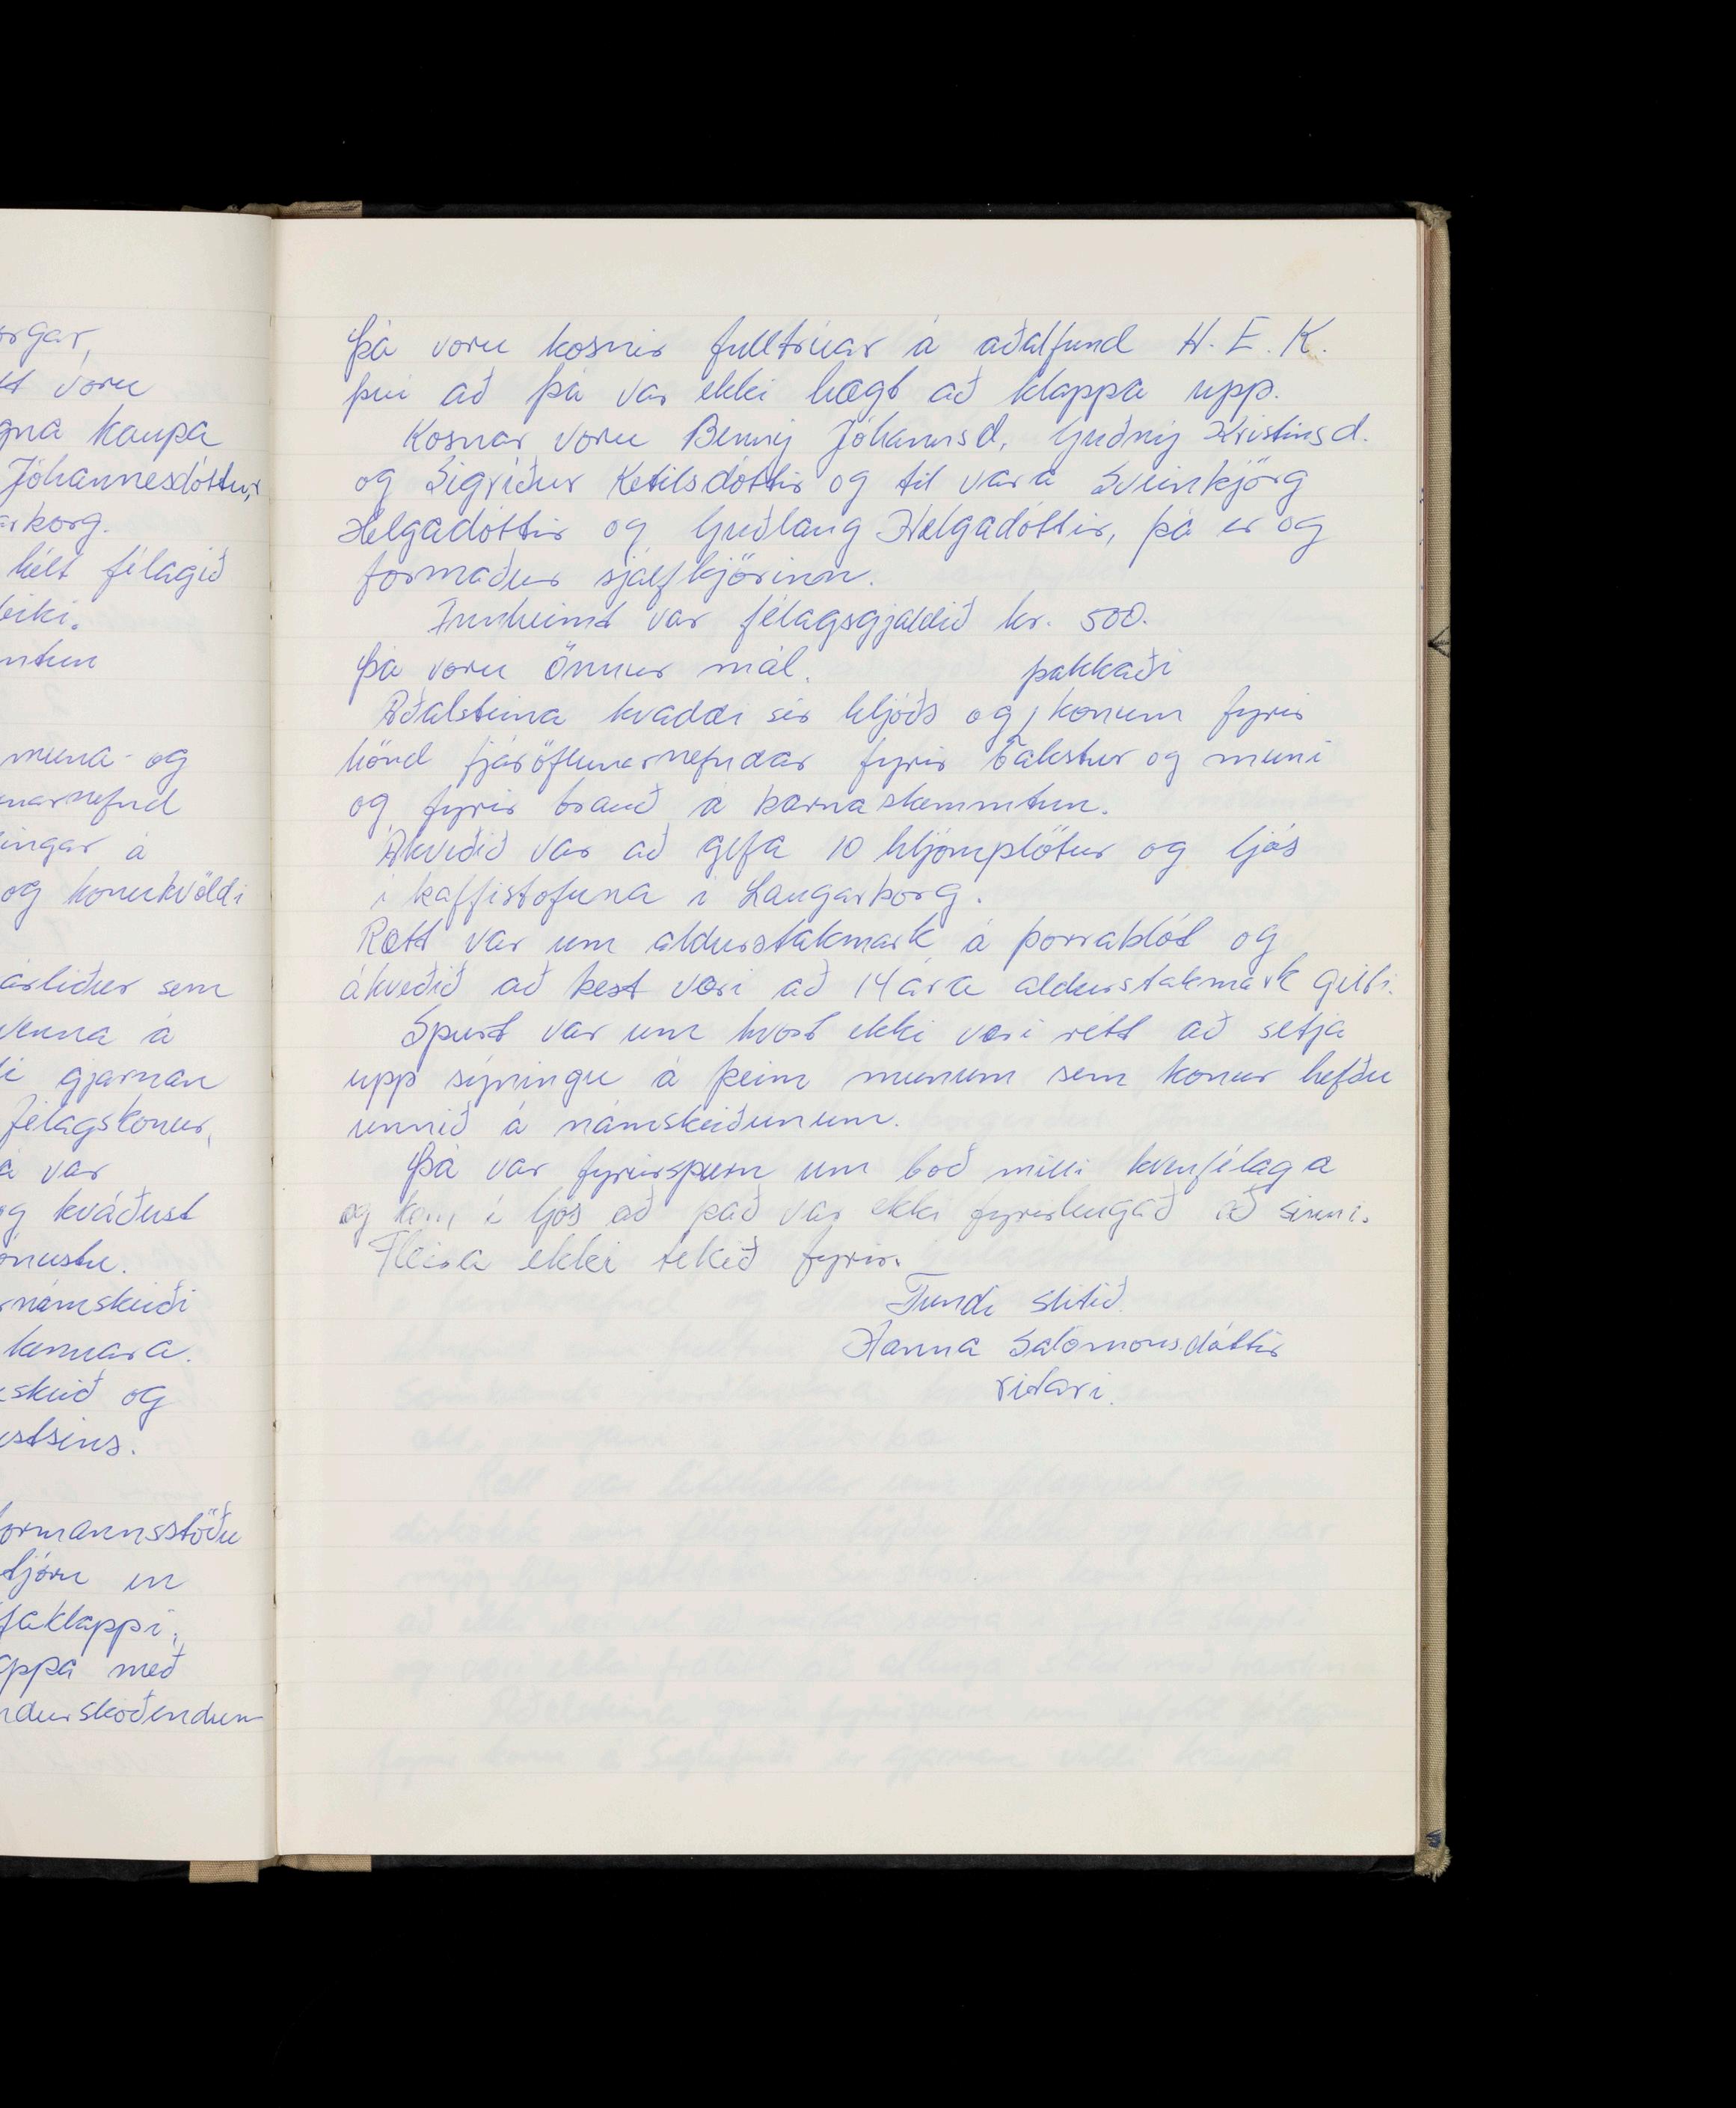 orgar,
tt voru
gna kaupa
Jóhannesdóttur,
arborg.
hélt félagið
muna- og
marnefnd
ingar á
og konukvöldi
árliður sem
venna á
i gjarnan
félagskonur,
á var
og kváðust
ónustu.
námskeiði
kennara.
skeið og
ustsins.
formannsstöðu
stjórn en
faklappi,
appa með
ndurskoðendum
Þá voru kosnir fulltrúar á aðalfund H.E.K.
því að þá var ekki hægt að klappa upp.
Kosnar voru Benný Jóhannsd, Guðný Kristinsd.
og Sigríður Ketilsdóttir og til vara Sveinbjörg
Helgadóttir og Guðlaug Helgadóttir, þá er og
formaður sjálfkjörinn.
Innheimt var félagsgjaldið kr. 500.
Þá voru önnur mál.
þakkaði
Aðalsteina kvaddi sér hljóðs og konum fyrir
hönd fjáröflunarnefndar fyrir bakstur og muni
og fyrir brauð á barnaskemmtun.
Ákveðið var að gefa 10 hljómplötur og ljós
í kaffistofuna í Laugarborg.
Rætt var um aldurstakmark á þorrablót og
ákveðið að best væri að 14 ára aldurstakmark gilti.
Spurt var um hvort ekki væri rétt að setja
upp sýningu á þeim munum sem konur hefðu
unnið á námskeiðunum.
Þá var fyrirspurn um boð milli kvenfélaga
og kom í ljós að það var ekki fyrirhugað að sinni.
Fleira ekki tekið fyrir.
Fundi slitið
Hanna Salomonsdóttir
ritari.